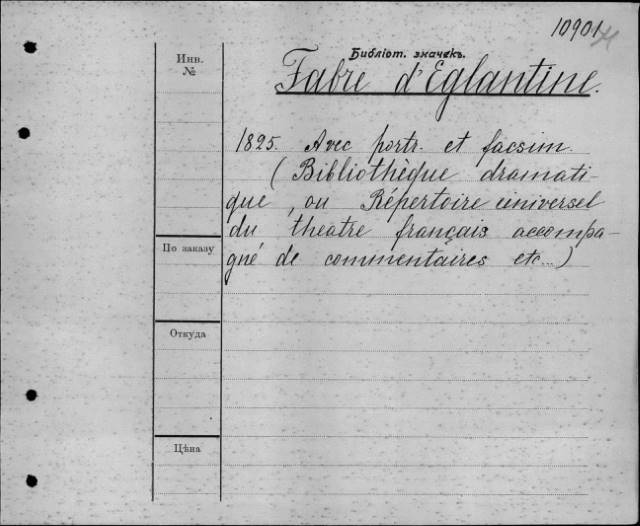 10901
Библіот. значекъ.
Инв.
№
Fabre d'Eglantine.
1825. Avec portr. et facsim.
(Bibliothèque dramati-
que, ou Répertoire universel
du theatre français accompa-
gné de commentaires etc...)
По заказу
Откуда
Цѣна